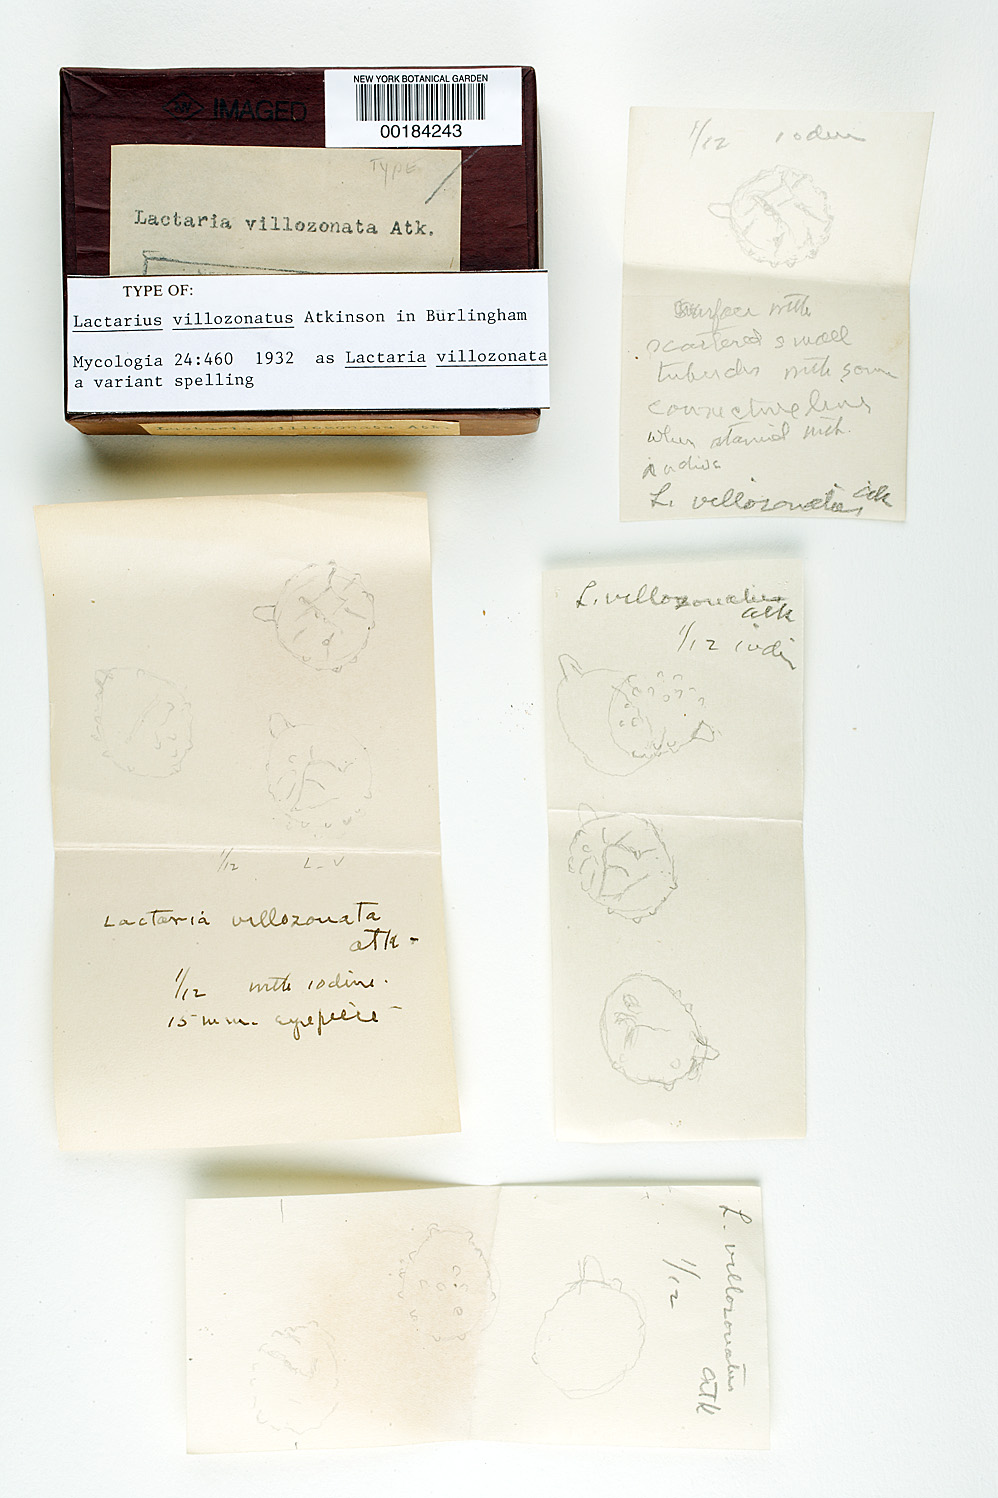 IMAGED
NEW YORK BOTANICAL GARDEN
00184243
TYPE
Lactaria villozonata Atk.
TYPE OF:
Lactarius villozonatus Atkinson in Burlingham
Mycologia 24:460 1932 as Lactaria villozonata
a variant spelling
Lactaria villozonata Atk.
1/12 iodin
surface with
scattered small
tubercles with some
connective lines
when stained with
iodine
L. villozonatus atk
1/12 L-V
Lactaria villozonata
atk-
1/12 with iodine.
15 mm. eyepiece
L. villozonatus
atk
1/12 iodin
L. villozonatus atk
1/12